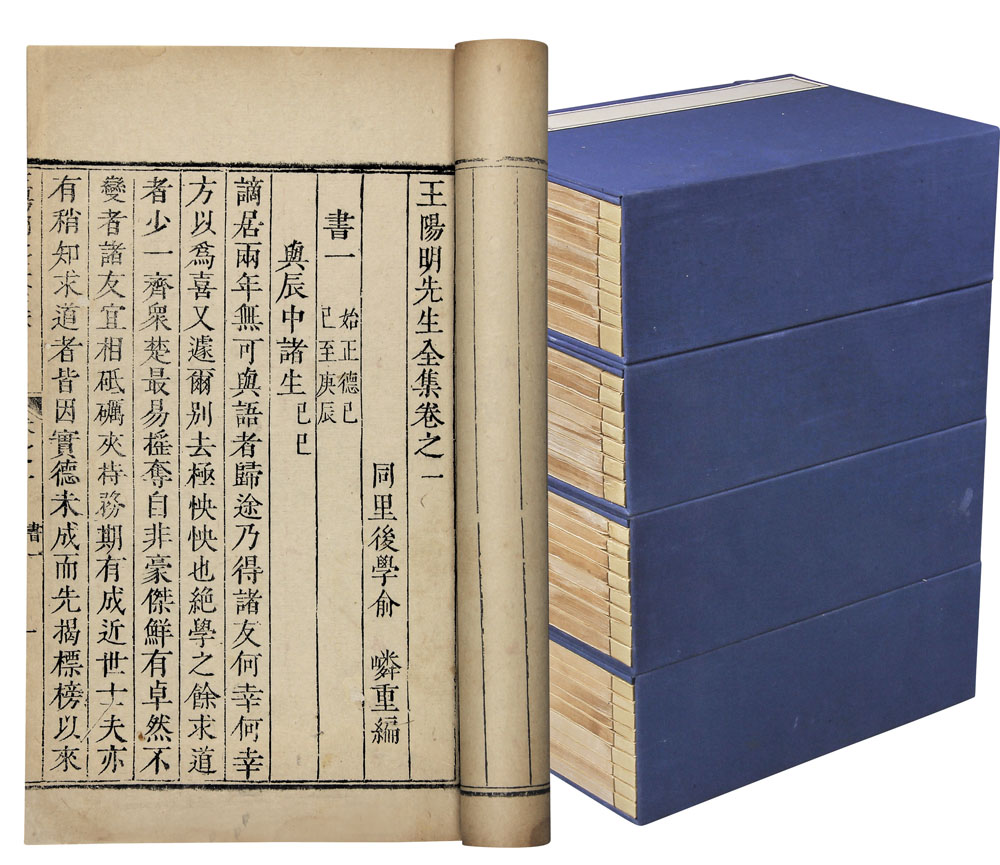 王陽明先生全集卷之一
同里後學俞　嶙重編
書一
始正德己
巳至庚辰
與辰中諸生
己巳
謫居兩年無可與語者歸途乃得諸友何幸何幸
方以爲喜又遽爾別去極怏怏也絶學之餘求道
者少一齊衆楚最易搖奪自非豪傑鮮有卓然不
變者諸友宜相砥礪夾持務期有成近世士夫亦
有稍知求道者皆因實德未成而先揭標榜以來
書一
一